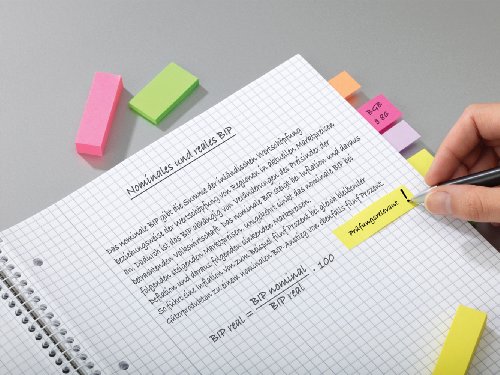 Nominales und reales BIP
Das nominale BIP gibt die Summe der inländischen Wertschöpfung
beziehungsweise der Wertschöpfung von Regionen in aktuellen Marktpreisen
an. Dadurch ist das BIP abhängig von Veränderungen des Preisindex der
betrachteten Volkswirtschaft. Das nominale BIP steigt bei Inflation und daraus
folgenden steigenden Marktpreisen. Umgekehrt sinkt das nominale BIP bei
Deflation und daraus folgenden sinkenden Marktpreisen.
So führt eine Inflation von zum Beispiel fünf Prozent bei gleich bleibender
Güterproduktion zu einem nominales BIP Anstieg von ebenfalls fünf Prozent.
BIP real = BIP nominal / BIP real · 100
BGB
§ 86
Prüfungsrelevant !